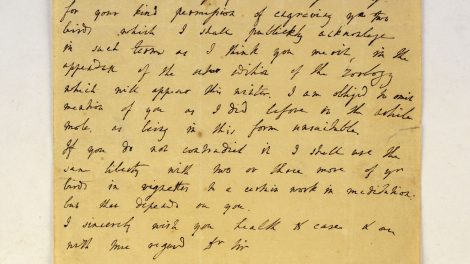 for your kind permission of engraving yr two
birds, which I shall publickly acknowlege
in such terms as I think you merit, in the
appendix of the edition of the Zoology
which will appear this winter. I am obliged to omit
mention of you as I did before on the article
mole, as being in this form unsuitable.
If you do not contradict it I shall use the
same liberty with two or three more of yr
birds in vignettes to a certain work in meditation.
but this depends on you.
I sincerely wish you health & ease & am
with true regard Dr Sir